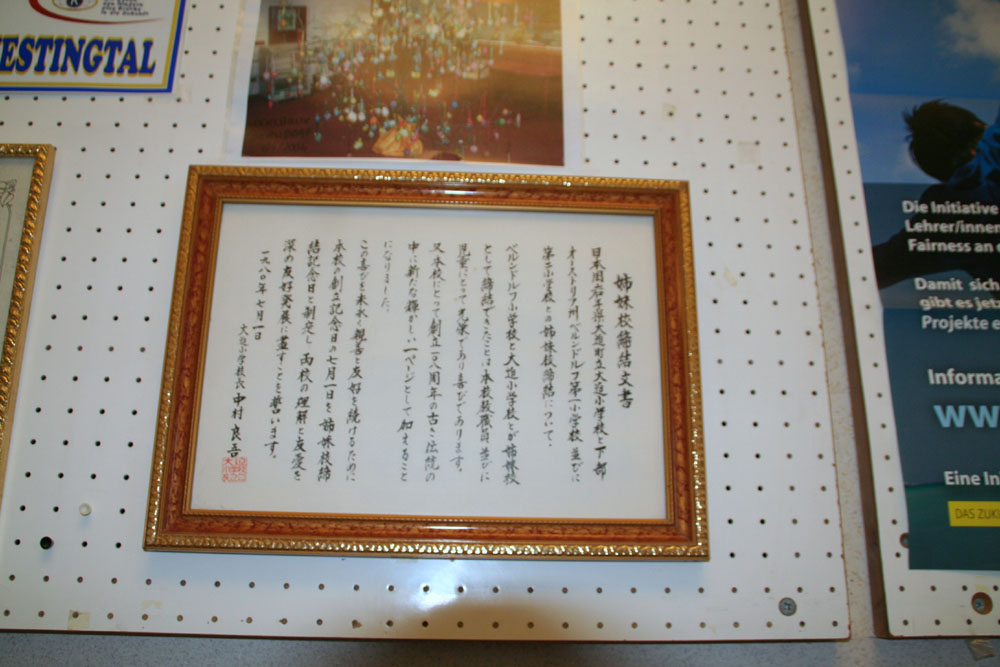 ESTINGTAL
姉妹校締結文書
日本国岩手県大迫町立大迫小学校と下部
オーストリア州ベルンドルフ第一小学校並びに
第二小学校との姉妹校締結について、
ベルンドルフ小学校と大迫小学校とが姉妹校
として締結できたことは本校教職員並びに
児童にとって光栄であり喜びであります。
又本校にとって創立一〇八周年の古き伝統の
中に新たな輝かしい一ページとして加えること
になりました。
この喜びを末永く親善と友好を続けるために
本校の創立記念日の七月一日を姉妹校締
結記念日と制定し両校の理解と友愛を
深め友好発展に尽すことを誓います。
一九八〇年七月一日
大迫小学校長 中村良吾
Die Initiative
Lehrer/innen
Fairness an
Damit sich
gibt es jetz
Projekte e
Informa
ww
Eine In
DAS ZUK